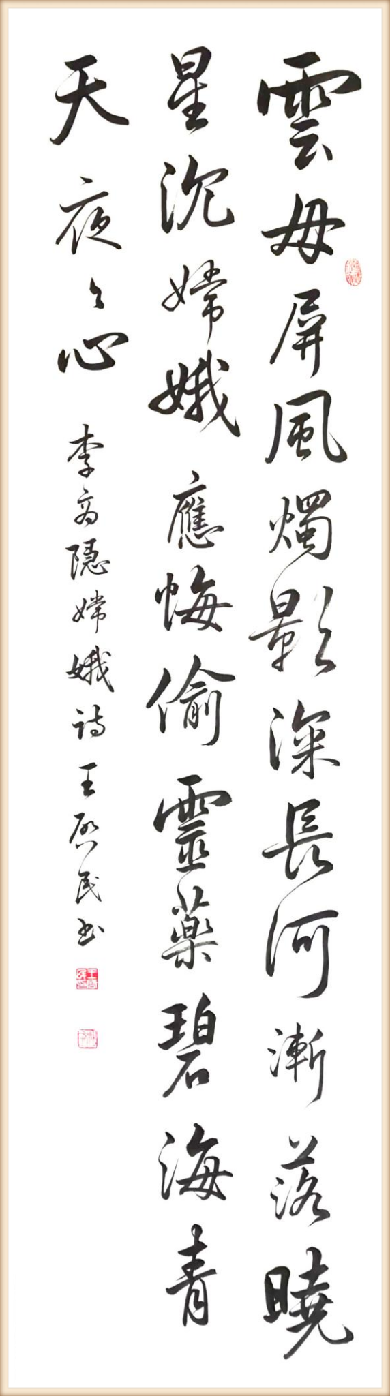 雲母屏風燭影深長河漸落曉
星沉嫦娥應悔偷靈藥碧海青
天夜々心
李商隱嫦娥詩王啟民書